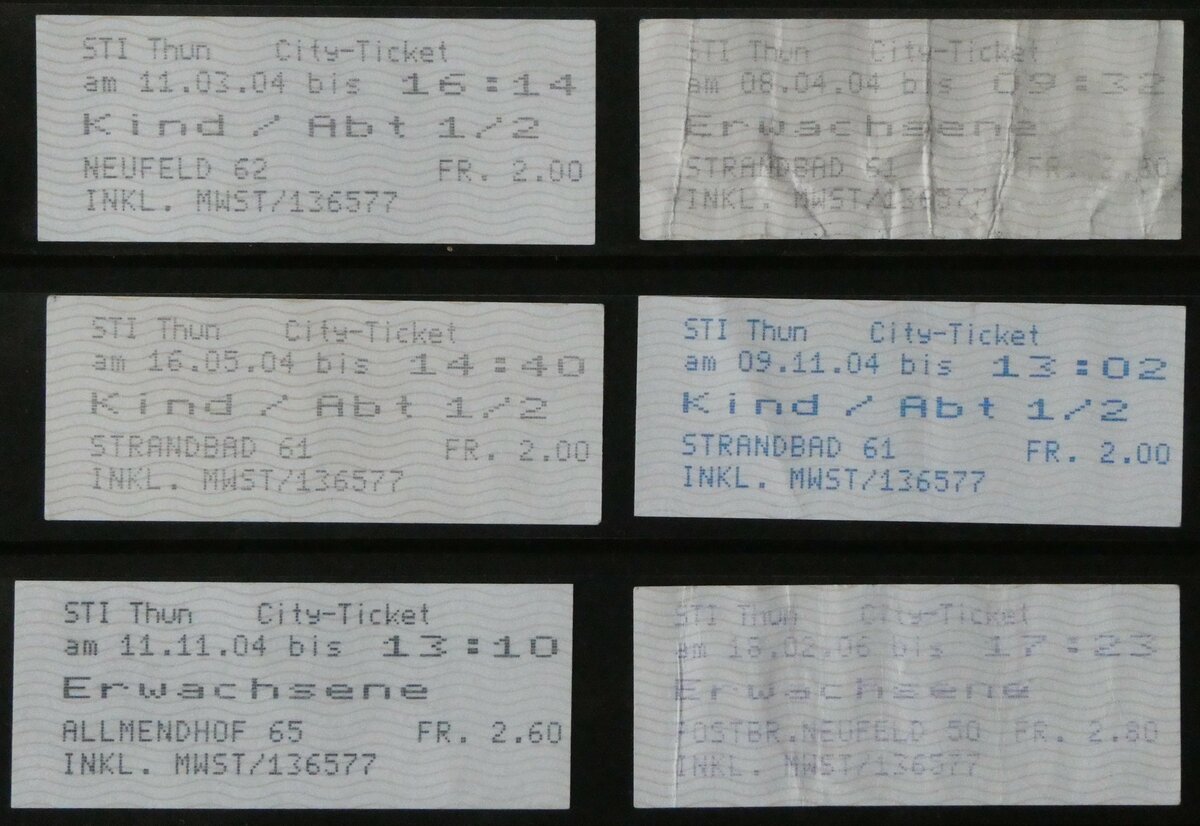 STI Thun City-Ticket
am 11.03.04 bis 16:14
Kind / Abt 1/2
NEUFELD 62 FR. 2.00
INKL. MWST/136577
STI Thun City-Ticket
am 08.04.04 bis 09:32
Erwachsene
STRANDBAD 61 FR.
INKL. MWST/136577
STI Thun City-Ticket
am 16.05.04 bis 14:40
Kind / Abt 1/2
STRANDBAD 61 FR. 2.00
INKL. MWST/136577
STI Thun City-Ticket
am 09.11.04 bis 13:02
Kind / Abt 1/2
STRANDBAD 61 FR. 2.00
INKL. MWST/136577
STI Thun City-Ticket
am 11.11.04 bis 13:10
Erwachsene
ALLMENDHOF 65 FR. 2.60
INKL. MWST/136577
STI Thun City-Ticket
am 18.02.06 bis 17:23
Erwachsene
POSTBR.NEUFELD 50 FR. 2.80
INKL. MWST/136577